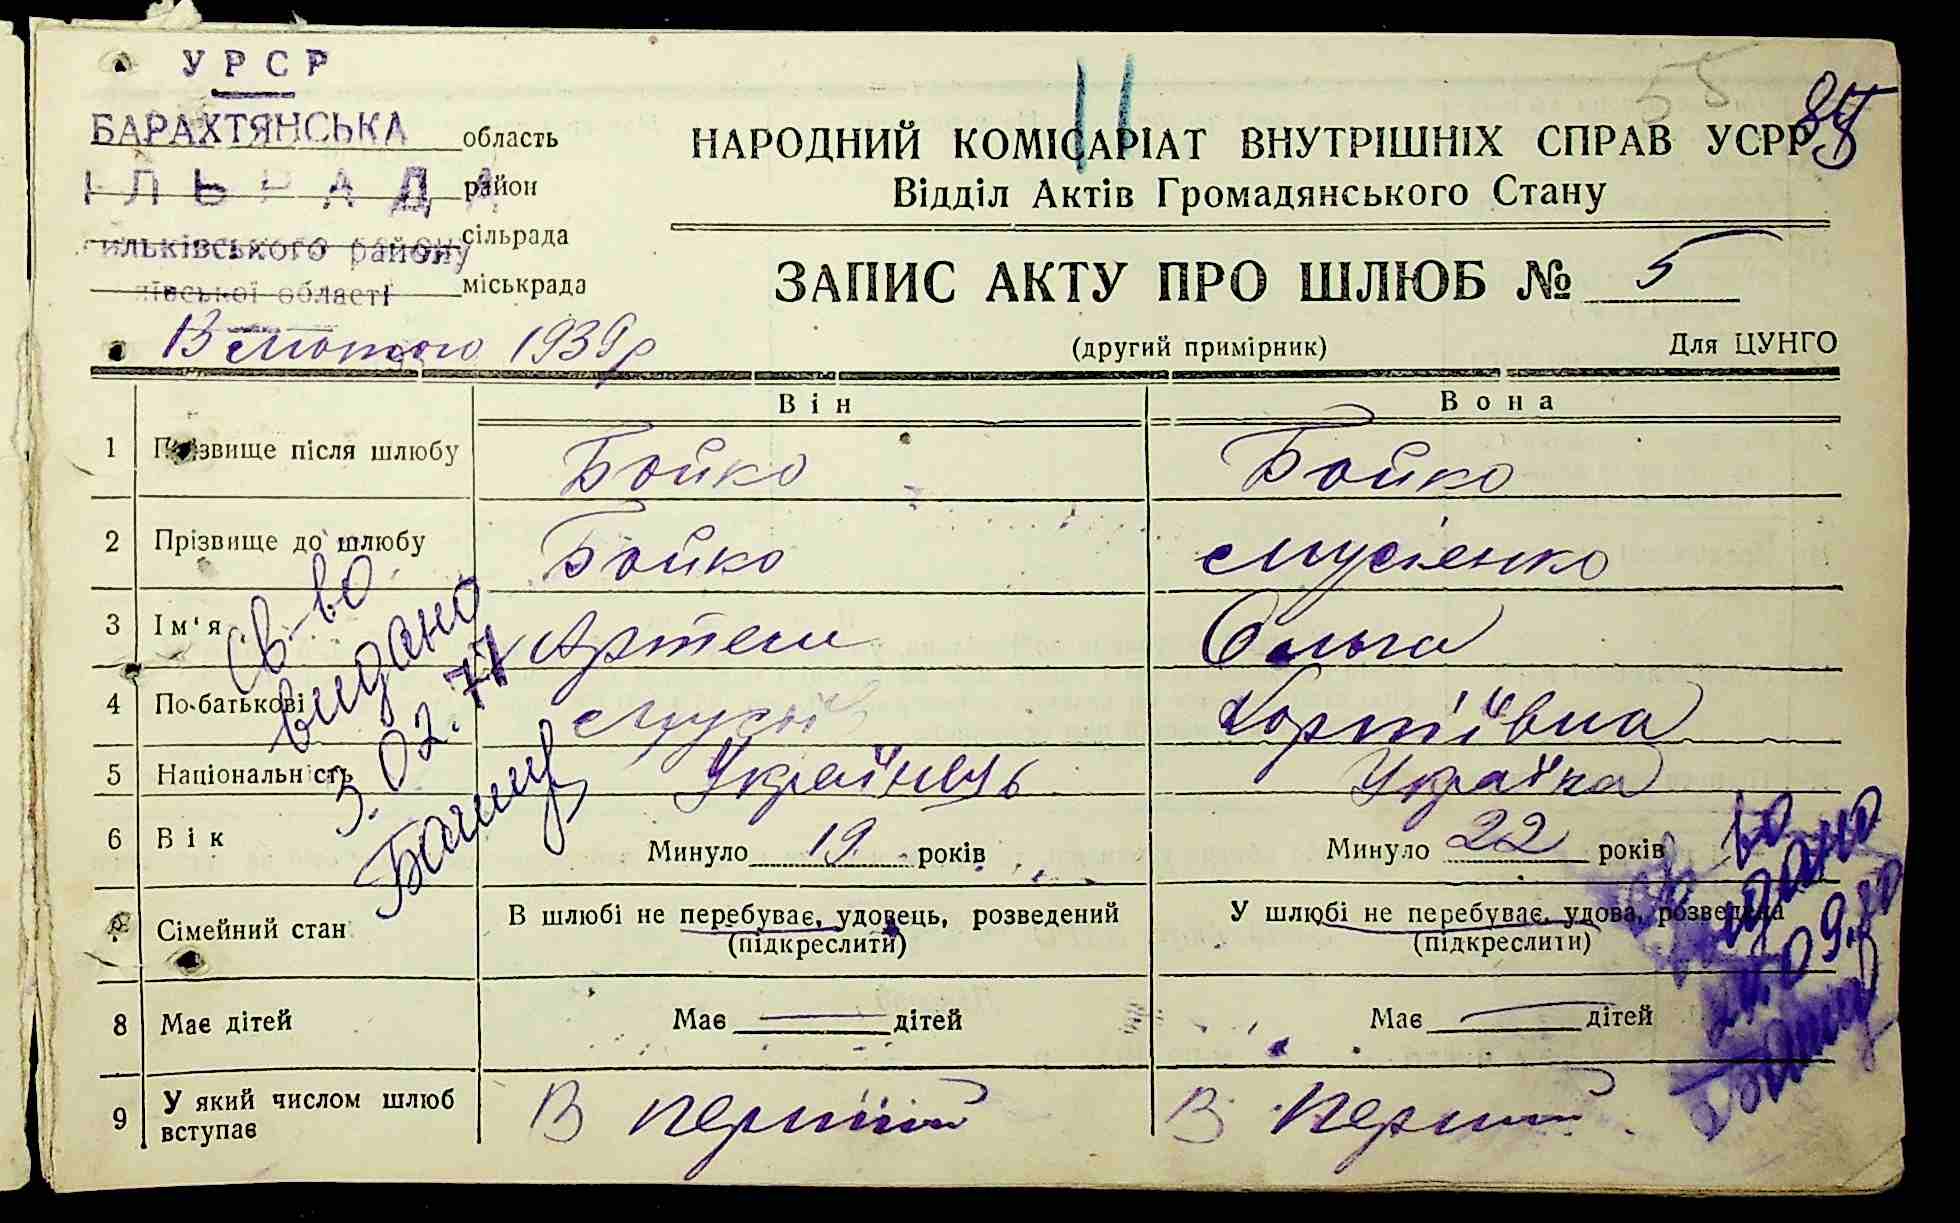 УРСР
БАРАХТЯНСЬКА область
ІЛЬРАДА район
сильківського району сільрада
ївської області міськрада
13 лютого 1939 р
58
85
НАРОДНИЙ КОМІСАРІАТ ВНУТРІШНІХ СПРАВ УСРР
Відділ Актів Громадянського Стану
ЗАПИС АКТУ ПРО ШЛЮБ № 5
(другий примірник) Для ЦУНГО
Він Вона
1 Прізвище після шлюбу Бойко Бойко
2 Прізвище до шлюбу Бойко Мусієнко
3 Ім'я Артем Ольга
4 По-батькові Мусій Корніївна
5 Національність Українець Українка
6 Вік Минуло 19 років Минуло 22 років
Сімейний стан В шлюбі не перебуває, удовець, розведений У шлюбі не перебуває, удова, розведена
(підкреслити) (підкреслити)
8 Має дітей Має дітей Має дітей
9 У який числом шлюб вступає В перший В перший
Св-во
видано
3.02.77
св-во
видано
09.80